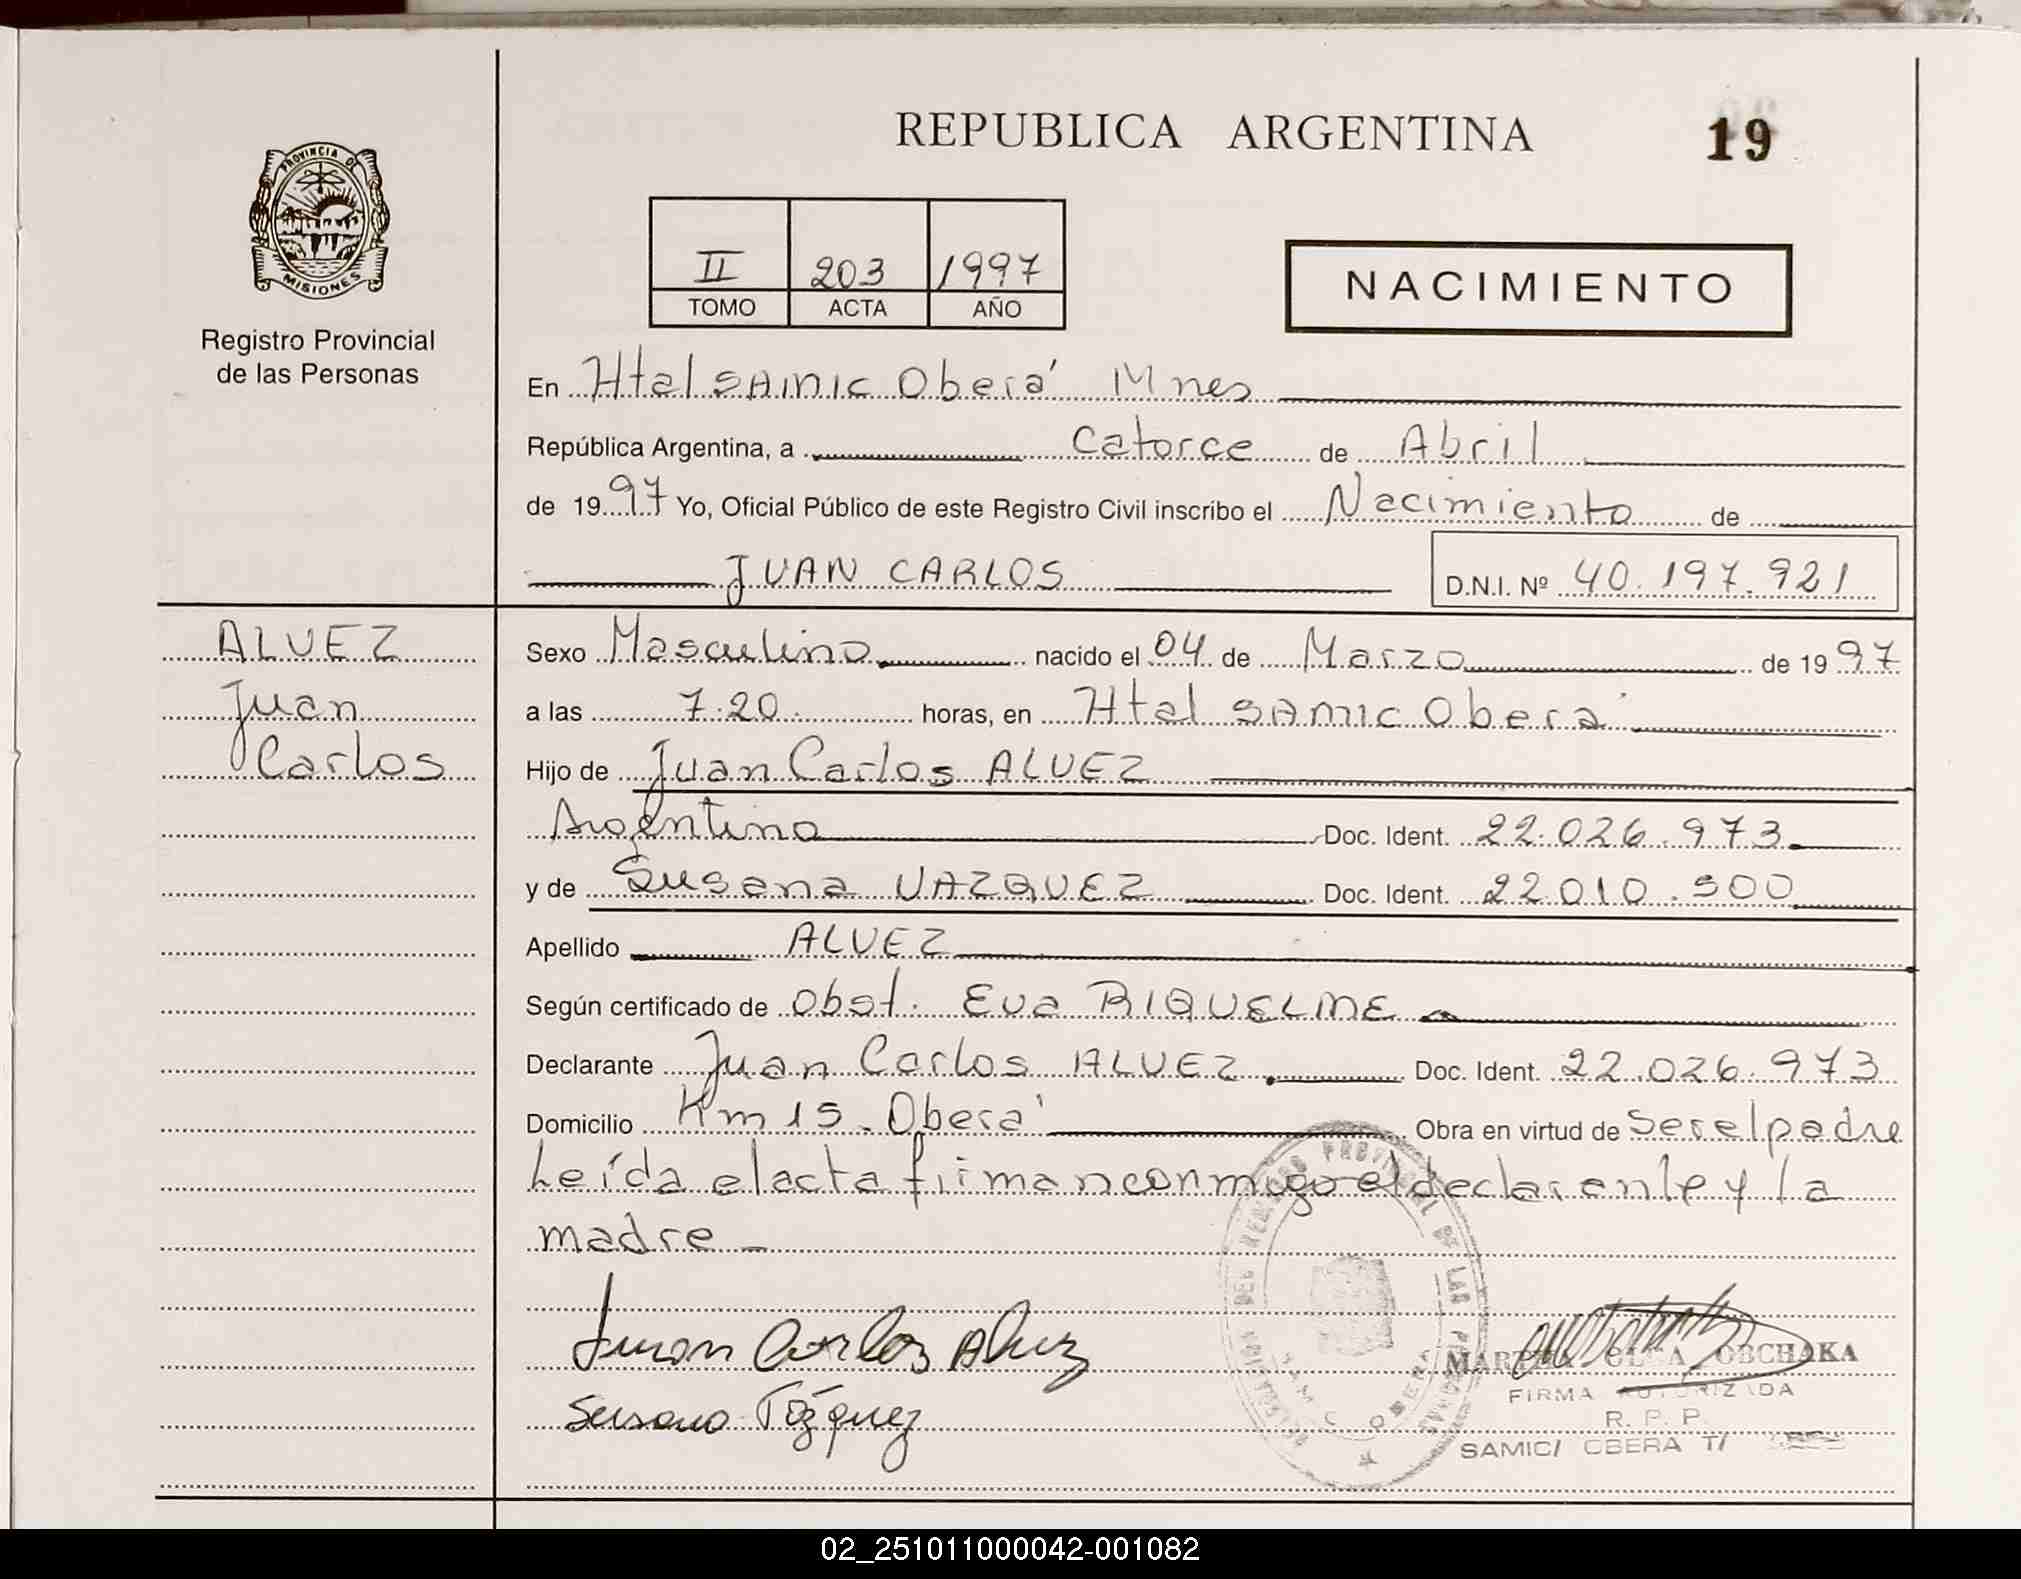 REPUBLICA ARGENTINA
19
PROVINCIA DE
MISIONES
Registro Provincial
de las Personas
II 203 1997
TOMO ACTA AÑO
NACIMIENTO
En Htal SAMIC Oberá Mnes
República Argentina, a catorce de Abril
de 1997 Yo, Oficial Público de este Registro Civil inscribo el Nacimiento de
JUAN CARLOS D.N.I. Nº 40.197.921
ALVEZ
Juan
Carlos
Sexo Masculino nacido el 04 de Marzo de 1997
a las 7.20 horas, en Htal SAMIC Oberá
Hijo de Juan Carlos ALVEZ
Argentino Doc. Ident. 22.026.973
y de Susana VAZQUEZ Doc. Ident. 22.010.500
Apellido ALVEZ
Según certificado de Obst. Eva RIQUELME
Declarante Juan Carlos ALVEZ Doc. Ident. 22.026.973
Domicilio Km 15 - Oberá Obra en virtud de ser el padre
Leída el acta firman conmigo el declarante y la
madre
DEL REGISTRO PROVINCIAL DE LAS PERSONAS
OBERA
Juan Carlos Alvez
Susana Vázquez
MARTHA OLGA OBCHAKA
FIRMA AUTORIZADA
R. P. P.
SAMIC/ OBERA T/
02_251011000042-001082